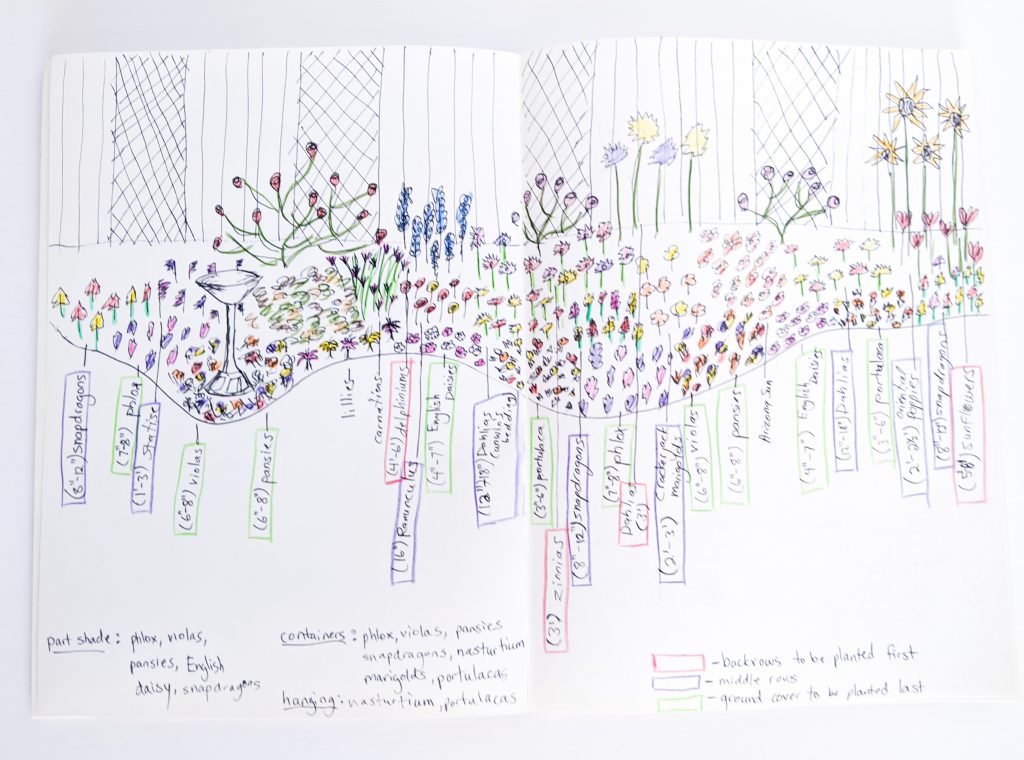 (8"-12") Snapdragons
(7-8") phlox
(1'-3') Statise
(6"-8") violas
(6"-8") pansies
lillies
carnations
(4'-6') delphiniums
(16") Ranunculus
(4"-7") English
Daisies
Dahlias
bedding
(3"-6") portulaca
(3') zinnias
(8"-12") Snapdragons
(7"-8") phlox
Dahlias
(3')
(2'-3') Crackerjack
marigolds
(6"-8") violas
(6"-8") pansies
Arizona Sun
(4"-7") English
Daisies
(12"-18") Dahlias
(3"-6") portulaca
poppies
(8"-12") snapdragons
sunflowers
part shade: phlox, violas,
pansies, English
daisy, snapdragons
containers: phlox, violas, pansies
snapdragons, nasturtium
marigolds, portulacas
hanging: nasturtium, portulacas
- backrows to be planted first
- middle rows
- ground cover to be planted last